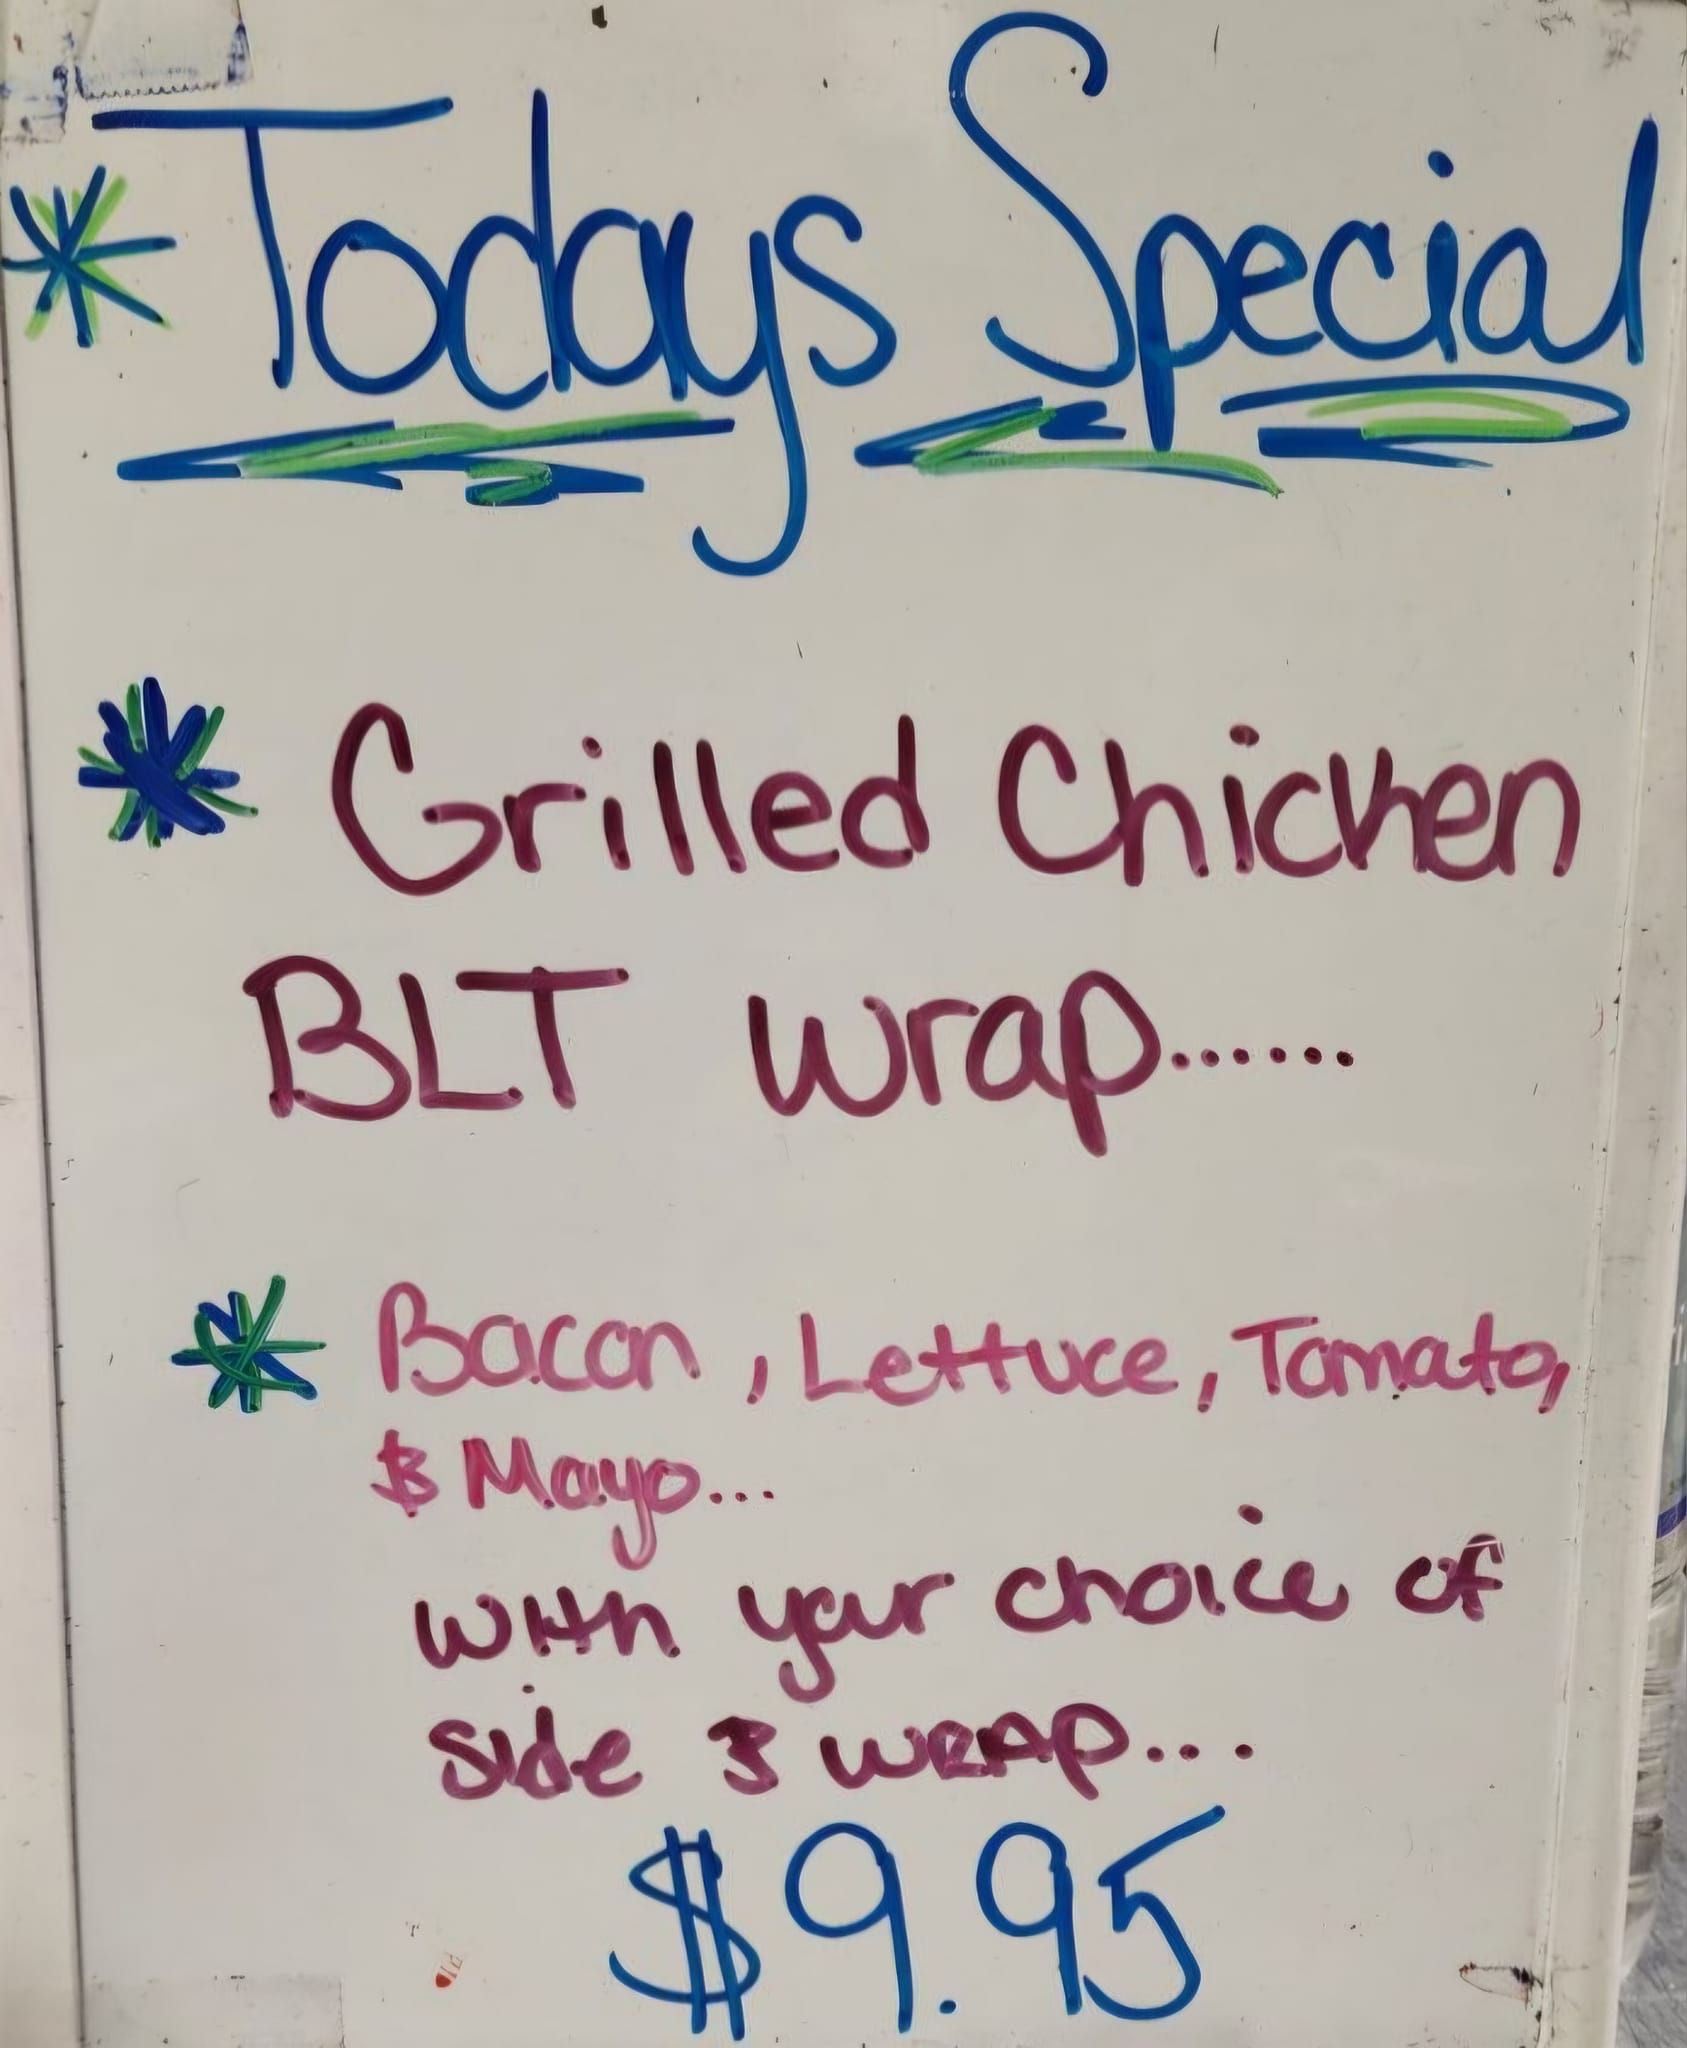 * Todays Special
* Grilled Chicken
BLT wrap......
* Bacon, Lettuce, Tomato,
& Mayo...
with your choice of
side & WRAP...
$9.95